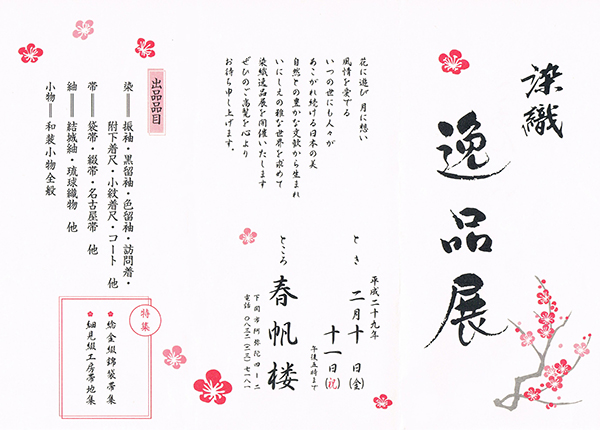 染織
逸品展
花に遊び 月に想い
風情を愛でる
いつの世にも人々が
あこがれ続ける日本の美
自然との豊かな文献から生まれ
いにしえの雅な世界を求めて
染織逸品展を開催いたします
ぜひのご高覧を心より
お待ち申し上げます。
とき
平成二十九年
二月十日(金)
十一日(祝)
午後五時まで
ところ
春帆楼
下関市阿弥陀四ー二
電話 〇八三二(三)七一八一
出品品目
染═振袖・黒留袖・色留袖・訪問着・
附下着尺・小紋着尺・コート 他
帯═袋帯・綴帯・名古屋帯 他
紬═結城紬・琉球織物 他
小物═和装小物全般
特集
総金綴錦袋帯集
細見綴工房帯地集